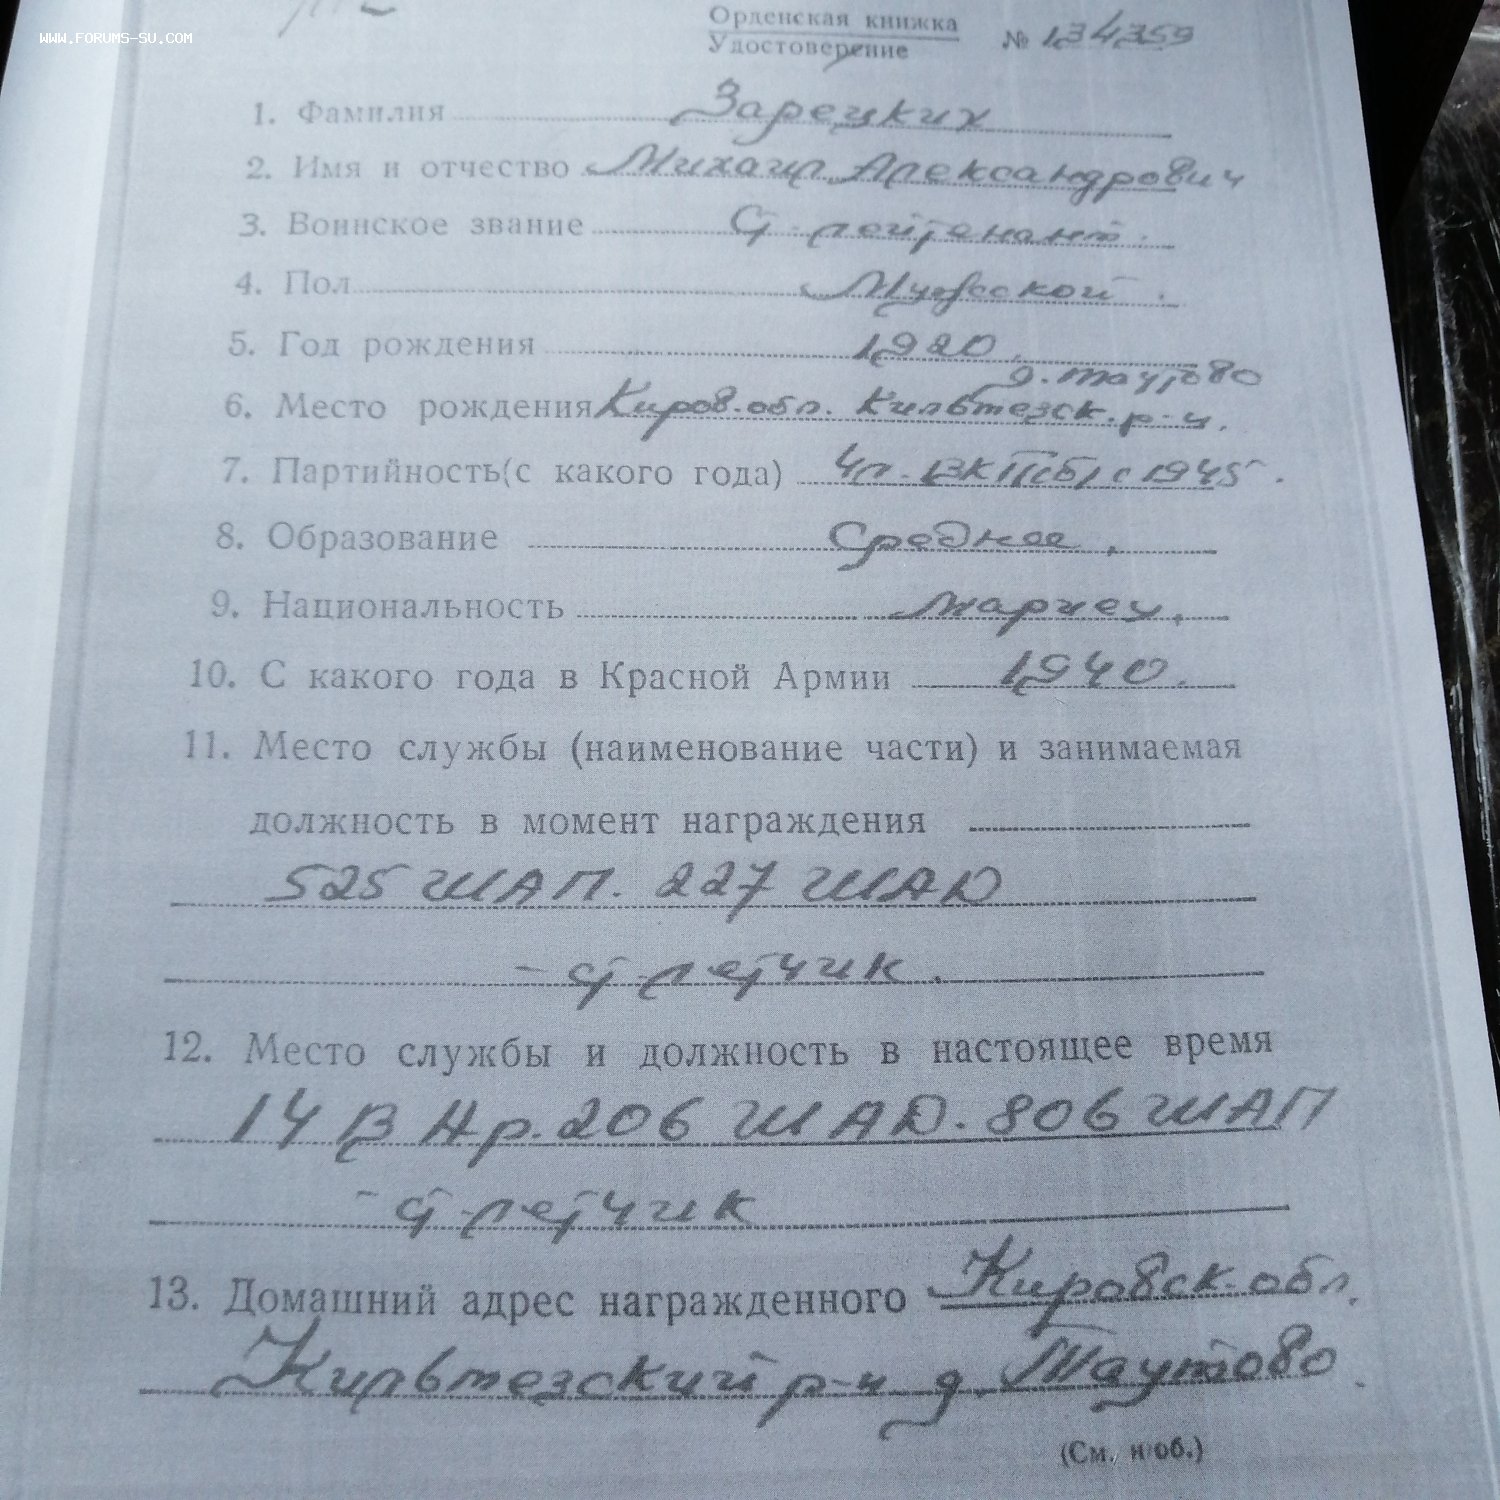 WWW.FORUMS-SU.COM
Орденская книжка
Удостоверение № 134359
1. Фамилия Зарецких
2. Имя и отчество Михаил Александрович
3. Воинское звание Ст-лейтенант.
4. Пол Мужской.
5. Год рождения 1920.
д. Маутово
6. Место рождения Киров. обл. Кильмезск. р-н.
7. Партийность (с какого года) Чл. ВКП(б) с 1945.
8. Образование Среднее.
9. Национальность Мариец.
10. С какого года в Красной Армии 1940.
11. Место службы (наименование части) и занимаемая
должность в момент награждения
525 ШАП. 227 ШАД
- ст-летчик.
12. Место службы и должность в настоящее время
14 ВАр. 206 ШАД. 806 ШАП
- ст-летчик
13. Домашний адрес награжденного Кировск-обл.
Кильмезский р-н д. Маутово.
(См. н/об.)